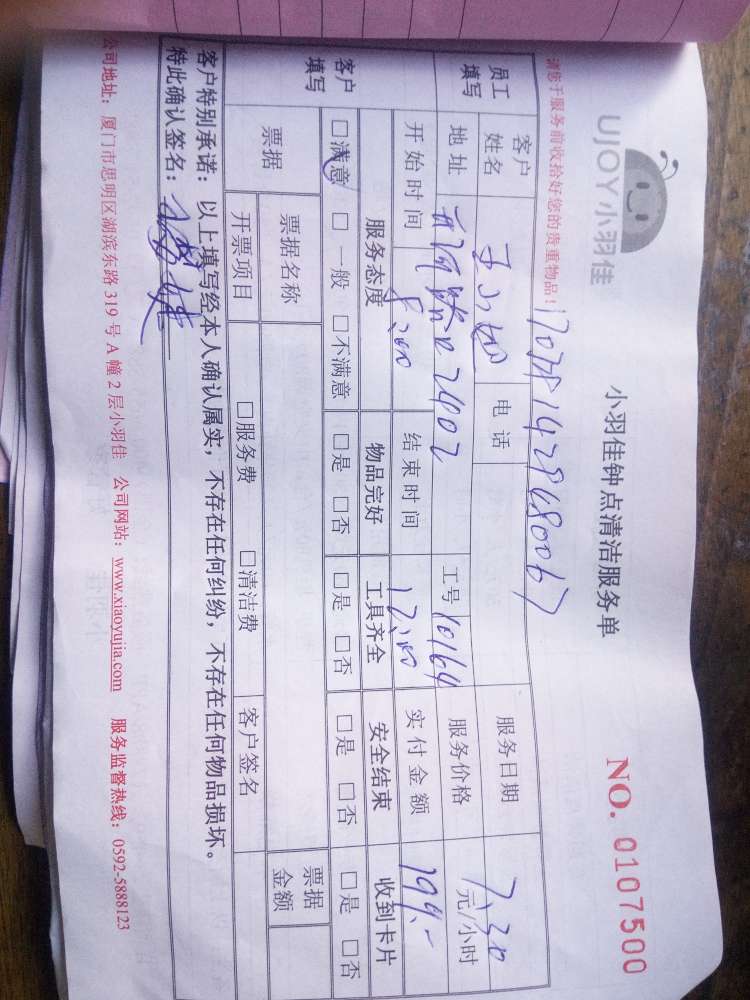 UJOY小羽佳
小羽佳钟点清洁服务单
NO. 0107500
请您于服务前收拾好您的贵重物品!
员工填写
客户姓名
电话
服务日期 7.30
地址 2402
工号 10164
服务价格 元/小时
开始时间 8:00
结束时间 12:00
实付金额 199.-
客户填写
服务态度 物品完好 工具齐全 安全结束 收到卡片
□满意 □一般 □不满意 □是 □否 □是 □否 □是 □否 □是 □否
票据
票据名称
票据金额
开票项目 □服务费 □清洁费 客户签名
客户特别承诺:以上填写经本人确认属实,不存在任何纠纷,不存在任何物品损坏。
特此确认签名:
公司地址:厦门市思明区湖滨东路319号A幢2层小羽佳 公司网站:www.xiaoyujia.com 服务监督热线:0592-5888123